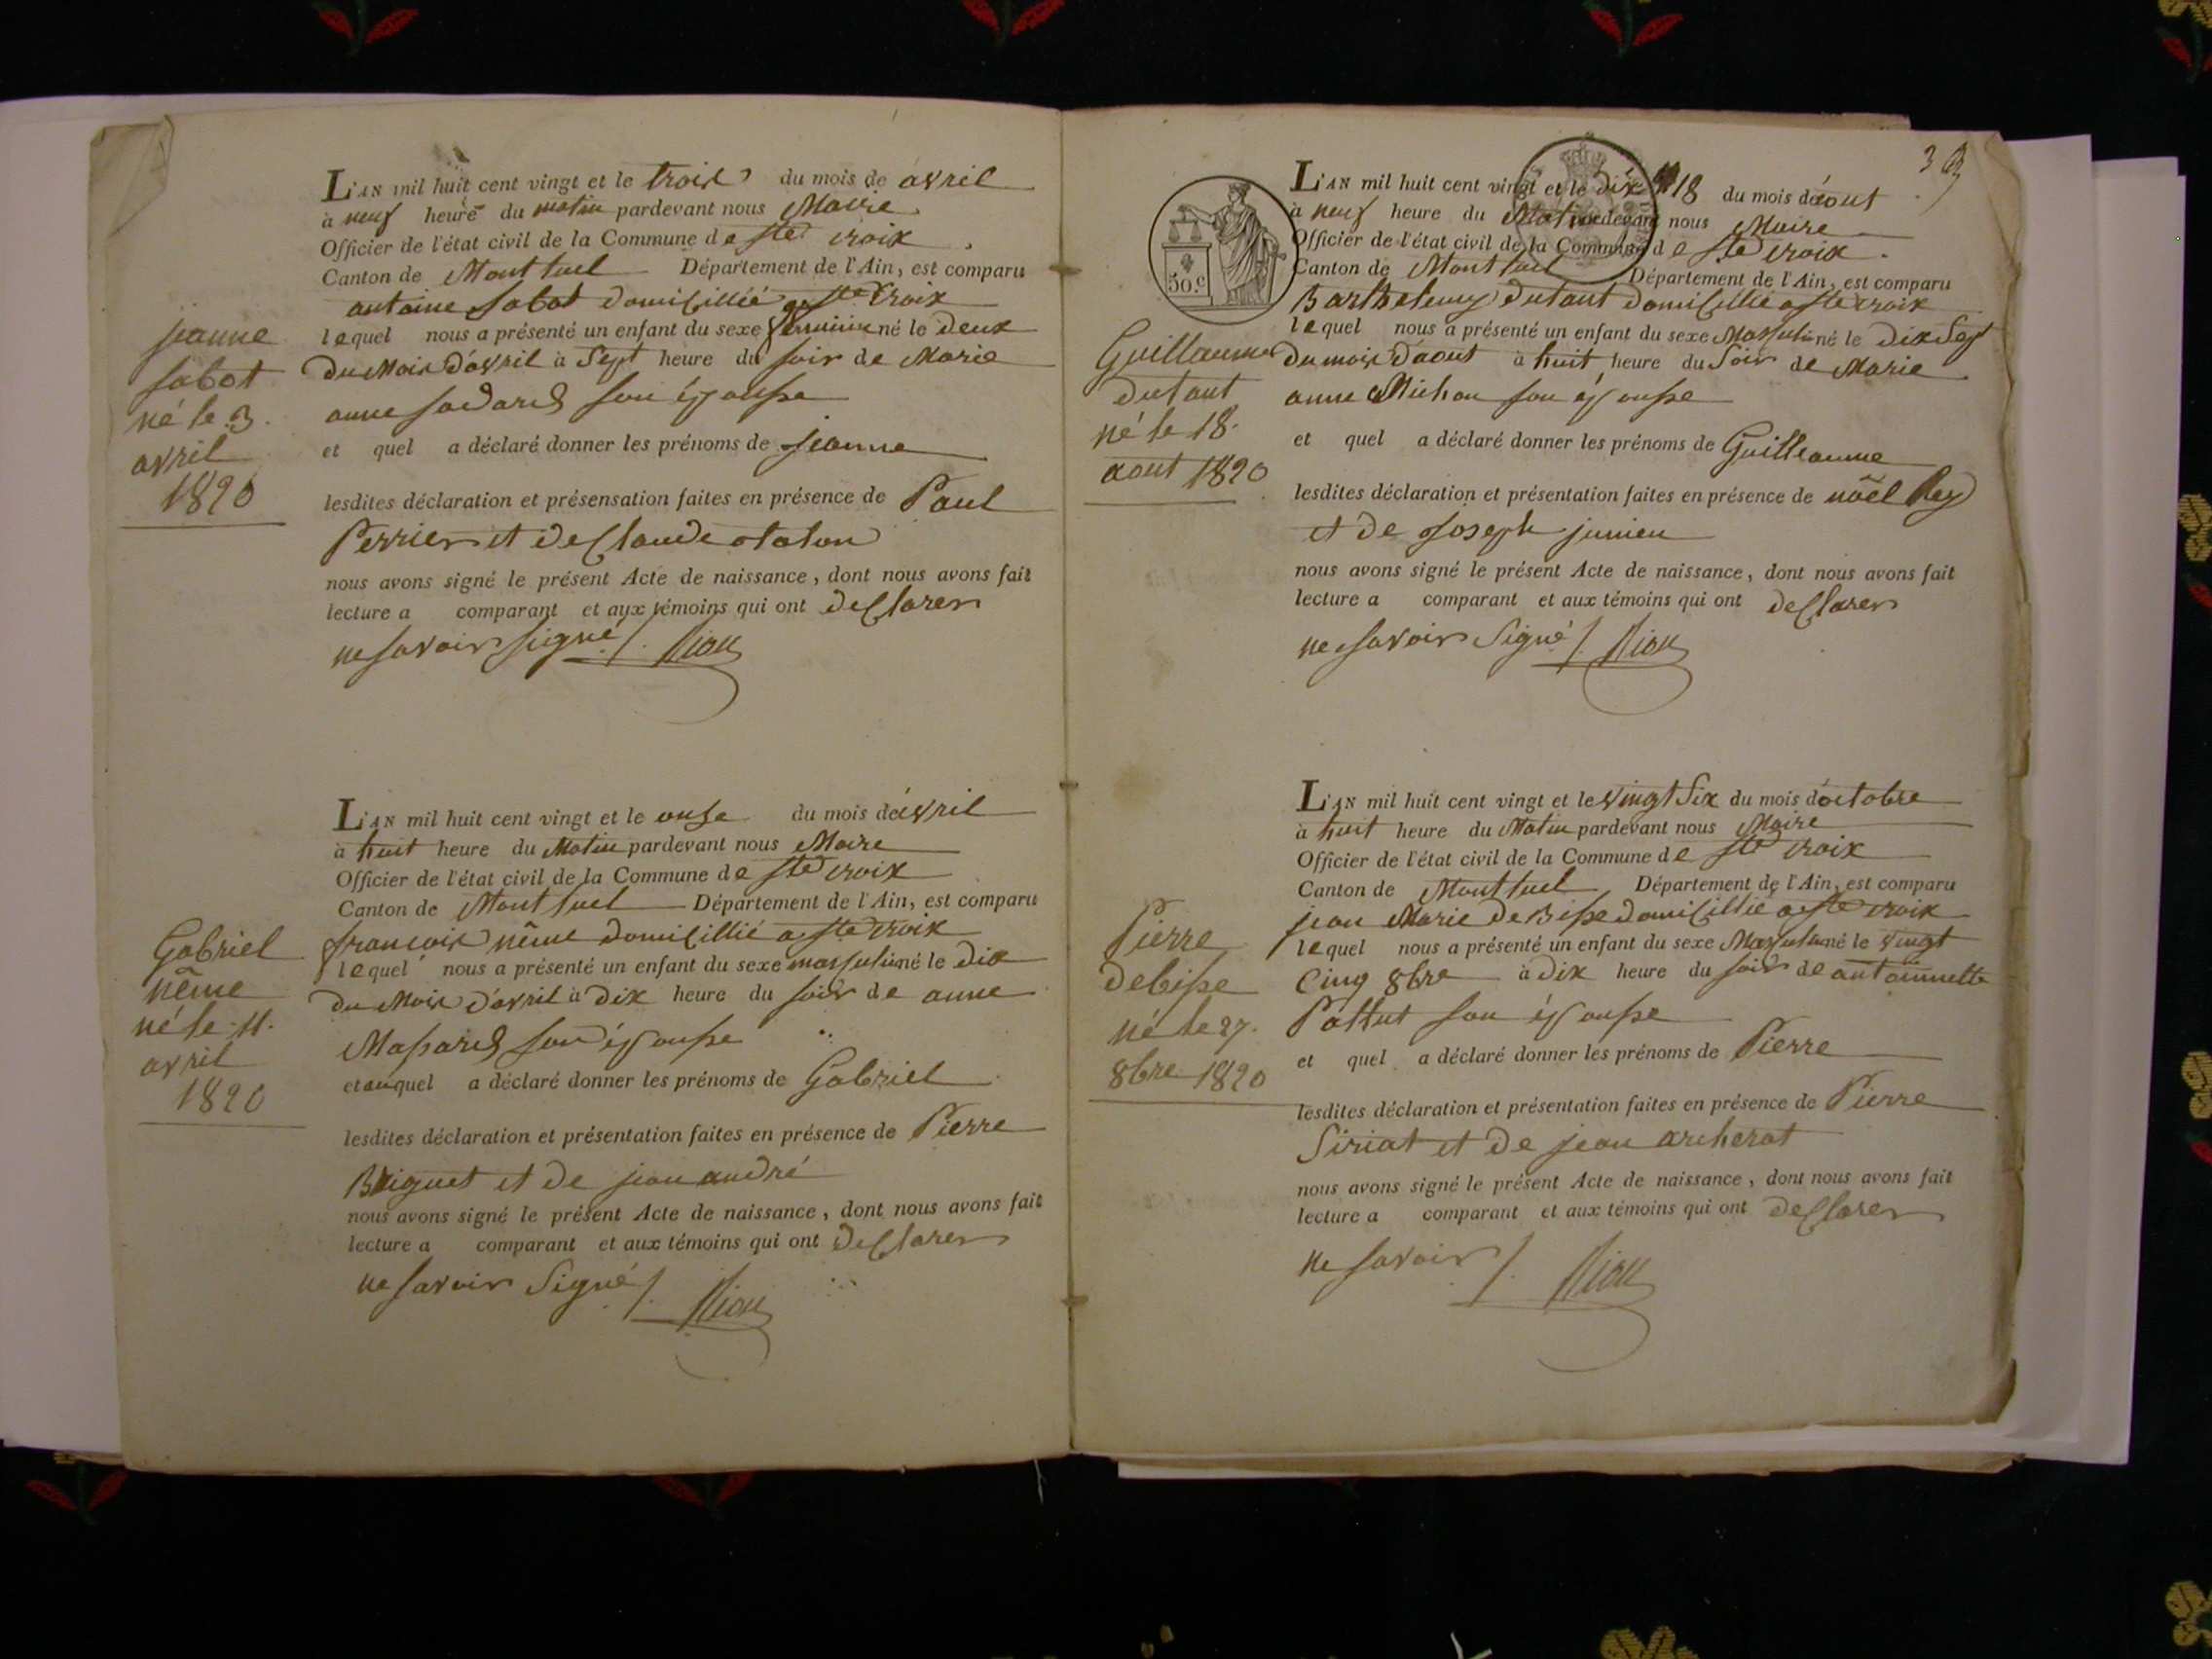 L'AN mil huit cent vingt et le trois du mois de avril
à neuf heure du matin pardevant nous Maire
Officier de l'état civil de la Commune de ste croix
Canton de Montluel Département de l'Ain, est comparu
antoine sabot domicillié a ste Croix
lequel nous a présenté un enfant du sexe né le deux
du Mois d'avril à Sept heure du soir de Marie
anne son épouse
et quel a déclaré donner les prénoms de jeanne
lesdites déclaration et présensation faites en présence de Paul
Perrier et de Claude
nous avons signé le présent Acte de naissance, dont nous avons fait
lecture a comparant et aux témoins qui ont declarer
ne savoir signé
jeanne
sabot
né le 3.
avril
1820
L'AN mil huit cent vingt et le onse du mois d'avril
à huit heure du Matin pardevant nous Maire
Officier de l'état civil de la Commune de ste croix
Canton de Montluel Département de l'Ain, est comparu
francois nême domicillié a ste croix
lequel nous a présenté un enfant du sexe masculin né le dix
du Mois d'avril à dix heure du soir de anne
son épouse
et auquel a déclaré donner les prénoms de Gabriel
lesdites déclaration et présentation faites en présence de Pierre
et de jean andré
nous avons signé le présent Acte de naissance, dont nous avons fait
lecture a comparant et aux témoins qui ont declarer
ne savoir Signé
Gabriel
nême
né le 11.
avril
1820
50.c
L'AN mil huit cent vingt et le dix 18 du mois d'aout
à neuf heure du Matin pardevant nous Maire
Officier de l'état civil de la Commune de ste croix
Canton de Montluel Département de l'Ain, est comparu
Barthelemy dutant domicillié a ste croix
lequel nous a présenté un enfant du sexe Masculin né le dix Sept
du mois d'aout à huit heure du Soir de Marie
anne Michon son épouse
et quel a déclaré donner les prénoms de Guilleaume
lesdites déclaration et présentation faites en présence de nöel Rey
et de joseph
nous avons signé le présent Acte de naissance, dont nous avons fait
lecture a comparant et aux témoins qui ont declarer
ne savoir Signé
Guillaume
dutant
né le 18.
aout 1820
L'AN mil huit cent vingt et le vingt Six du mois d'octobre
à huit heure du Matin pardevant nous Maire
Officier de l'état civil de la Commune de ste croix
Canton de Montluel Département de l'Ain, est comparu
jean Marie de Bisse domicillié a ste croix
lequel nous a présenté un enfant du sexe Masculin né le vingt
Cinq 8bre à dix heure du soir de antoinnette
son épouse
et quel a déclaré donner les prénoms de Pierre
lesdites déclaration et présentation faites en présence de Pierre
Siriat et de jean archerat
nous avons signé le présent Acte de naissance, dont nous avons fait
lecture a comparant et aux témoins qui ont declarer
ne savoir
Pierre
debisse
né le 27.
8bre 1820